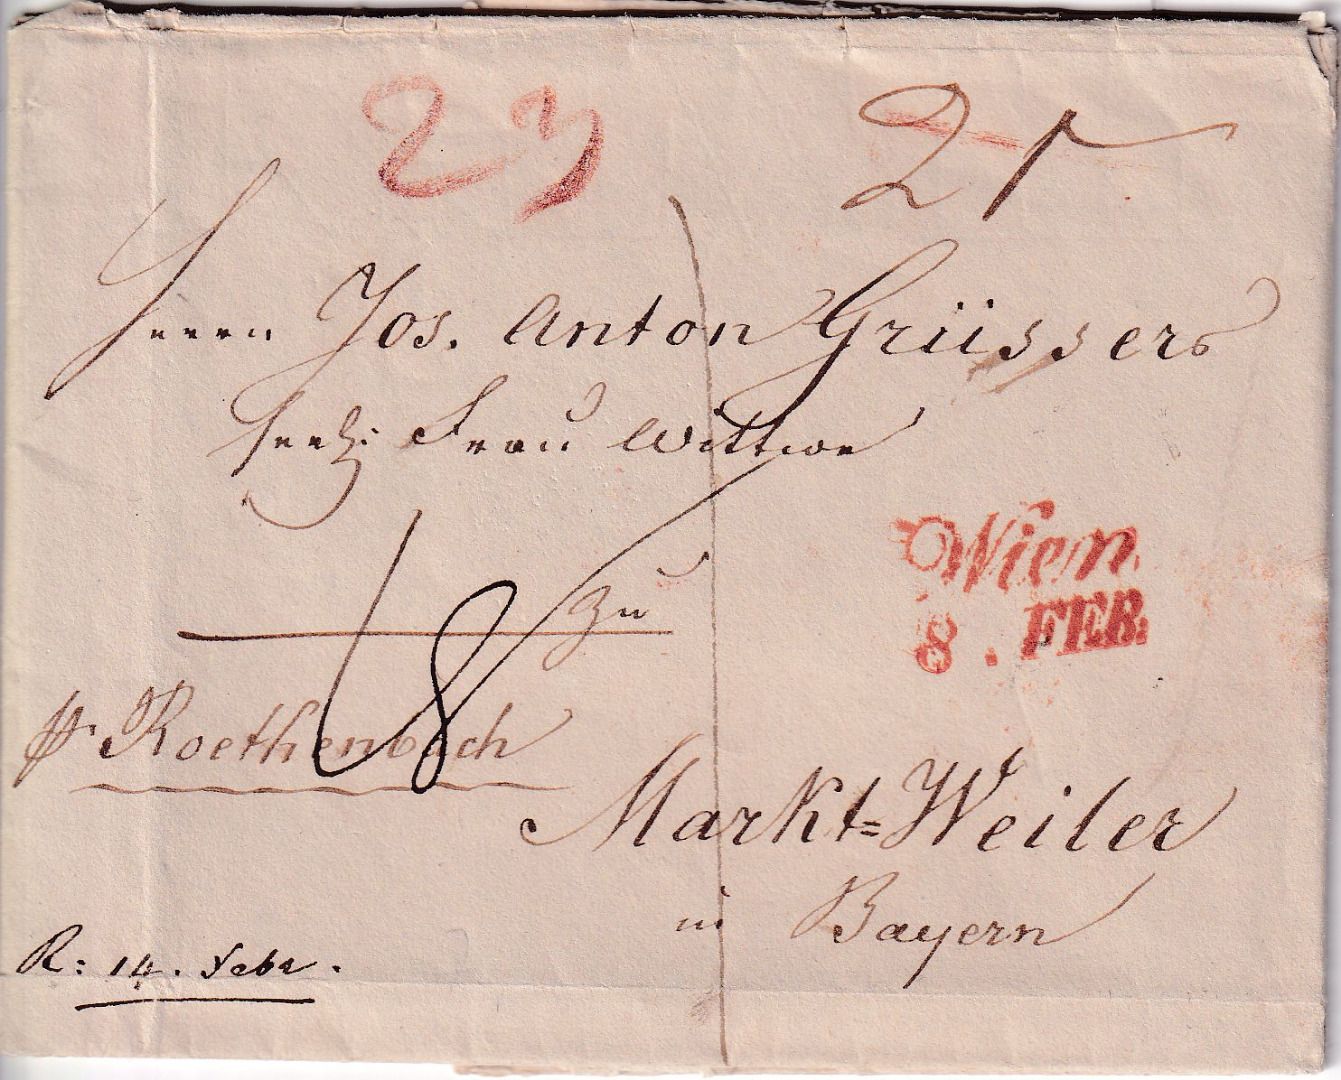 23
Herrn Jos. Anton Grüssers
seel: Frau Wittwe
Wien
8. FEB.
zu
18
pr Roethenbach
Markt=Weiler
in Bayern
R: 14. Febr.